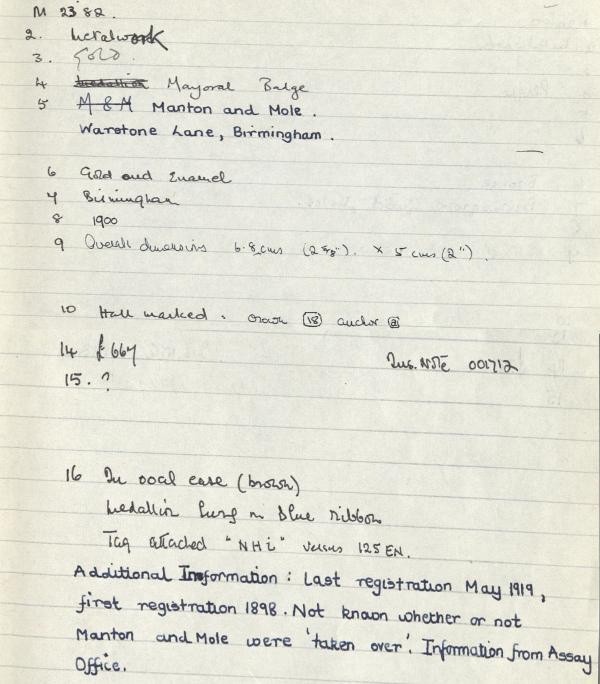 M 2382.
2. Metalwork
3. GOLD.
4 Medallion Mayoral Badge
5 M & M Manton and Mole.
Warstone Lane, Birmingham.
6 Gold and Enamel
7 Birmingham
8 1900
9 Overall dimensions 6.8 cms (2 5/8"). x 5 cms (2").
10 Hall marked: crown 18 anchor a
14 £667
Ins. Note 001712
15. ?
16 In oval case (brown)
Medallion hung on blue ribbon
Tag attached "NHi" versus 125 EN.
Additional Information: Last registration May 1919,
first registration 1898. Not known whether or not
Manton and Mole were 'taken over'. Information from Assay
Office.